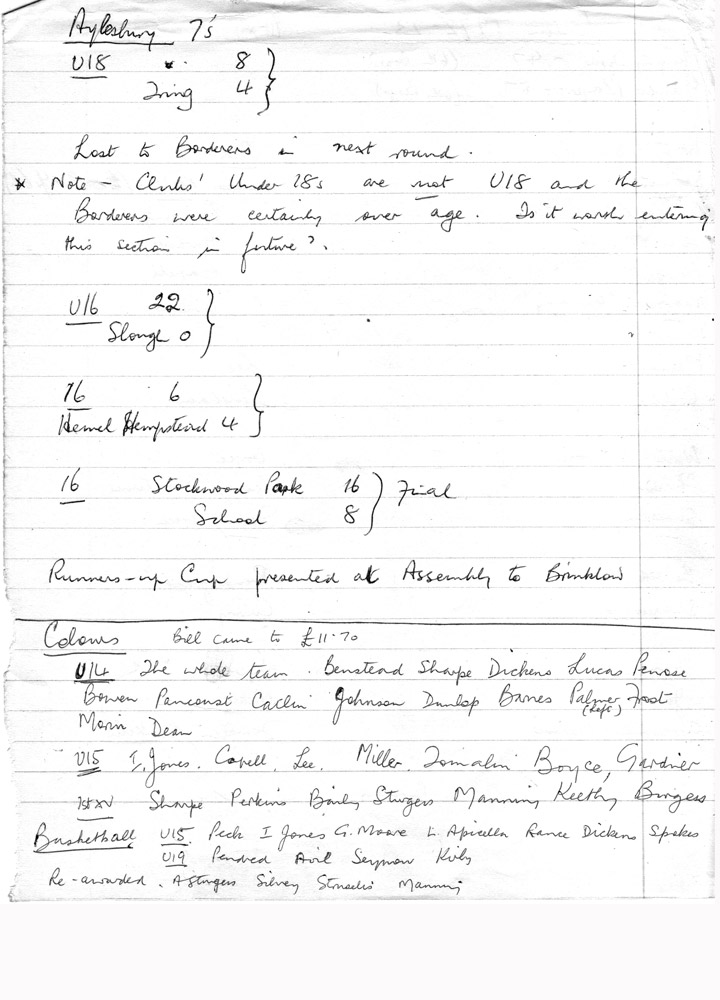 Aylesbury 7's
U18 " 8
Tring 4
Lost to Borderers in next round.
* Note - Clubs' Under 18s are not U18 and the
Borderers were certainly over age. Is it worth entering
this section in future?.
U16 22
Slough 0
16 6
Hemel Hempstead 4
16 Stockwood Park 16 Final
School 8
Runners-up Cup presented at Assembly to Brinklow
Colours Bill came to £11.70
U14 The whole team. Benstead Sharpe Dickens Lucas Penrose
Bowen Pancoust Catlin Johnson Dunlop Barnes Palmer Frost
(Capt)
Morin Dean
U15 I. Jones. Capell. Lee. Miller. Tomalin Boyce, Gardner
1st XV Sharpe Perkins Bailey Sturgess Manning Keethy Burgess
Basketball U15 Peck I Jones G. Moore L. Apicella Rance Dickens Spokes
U19 Pendred Avil Seymour Kirby
Re-awarded. A Sturgess Silvey Manning